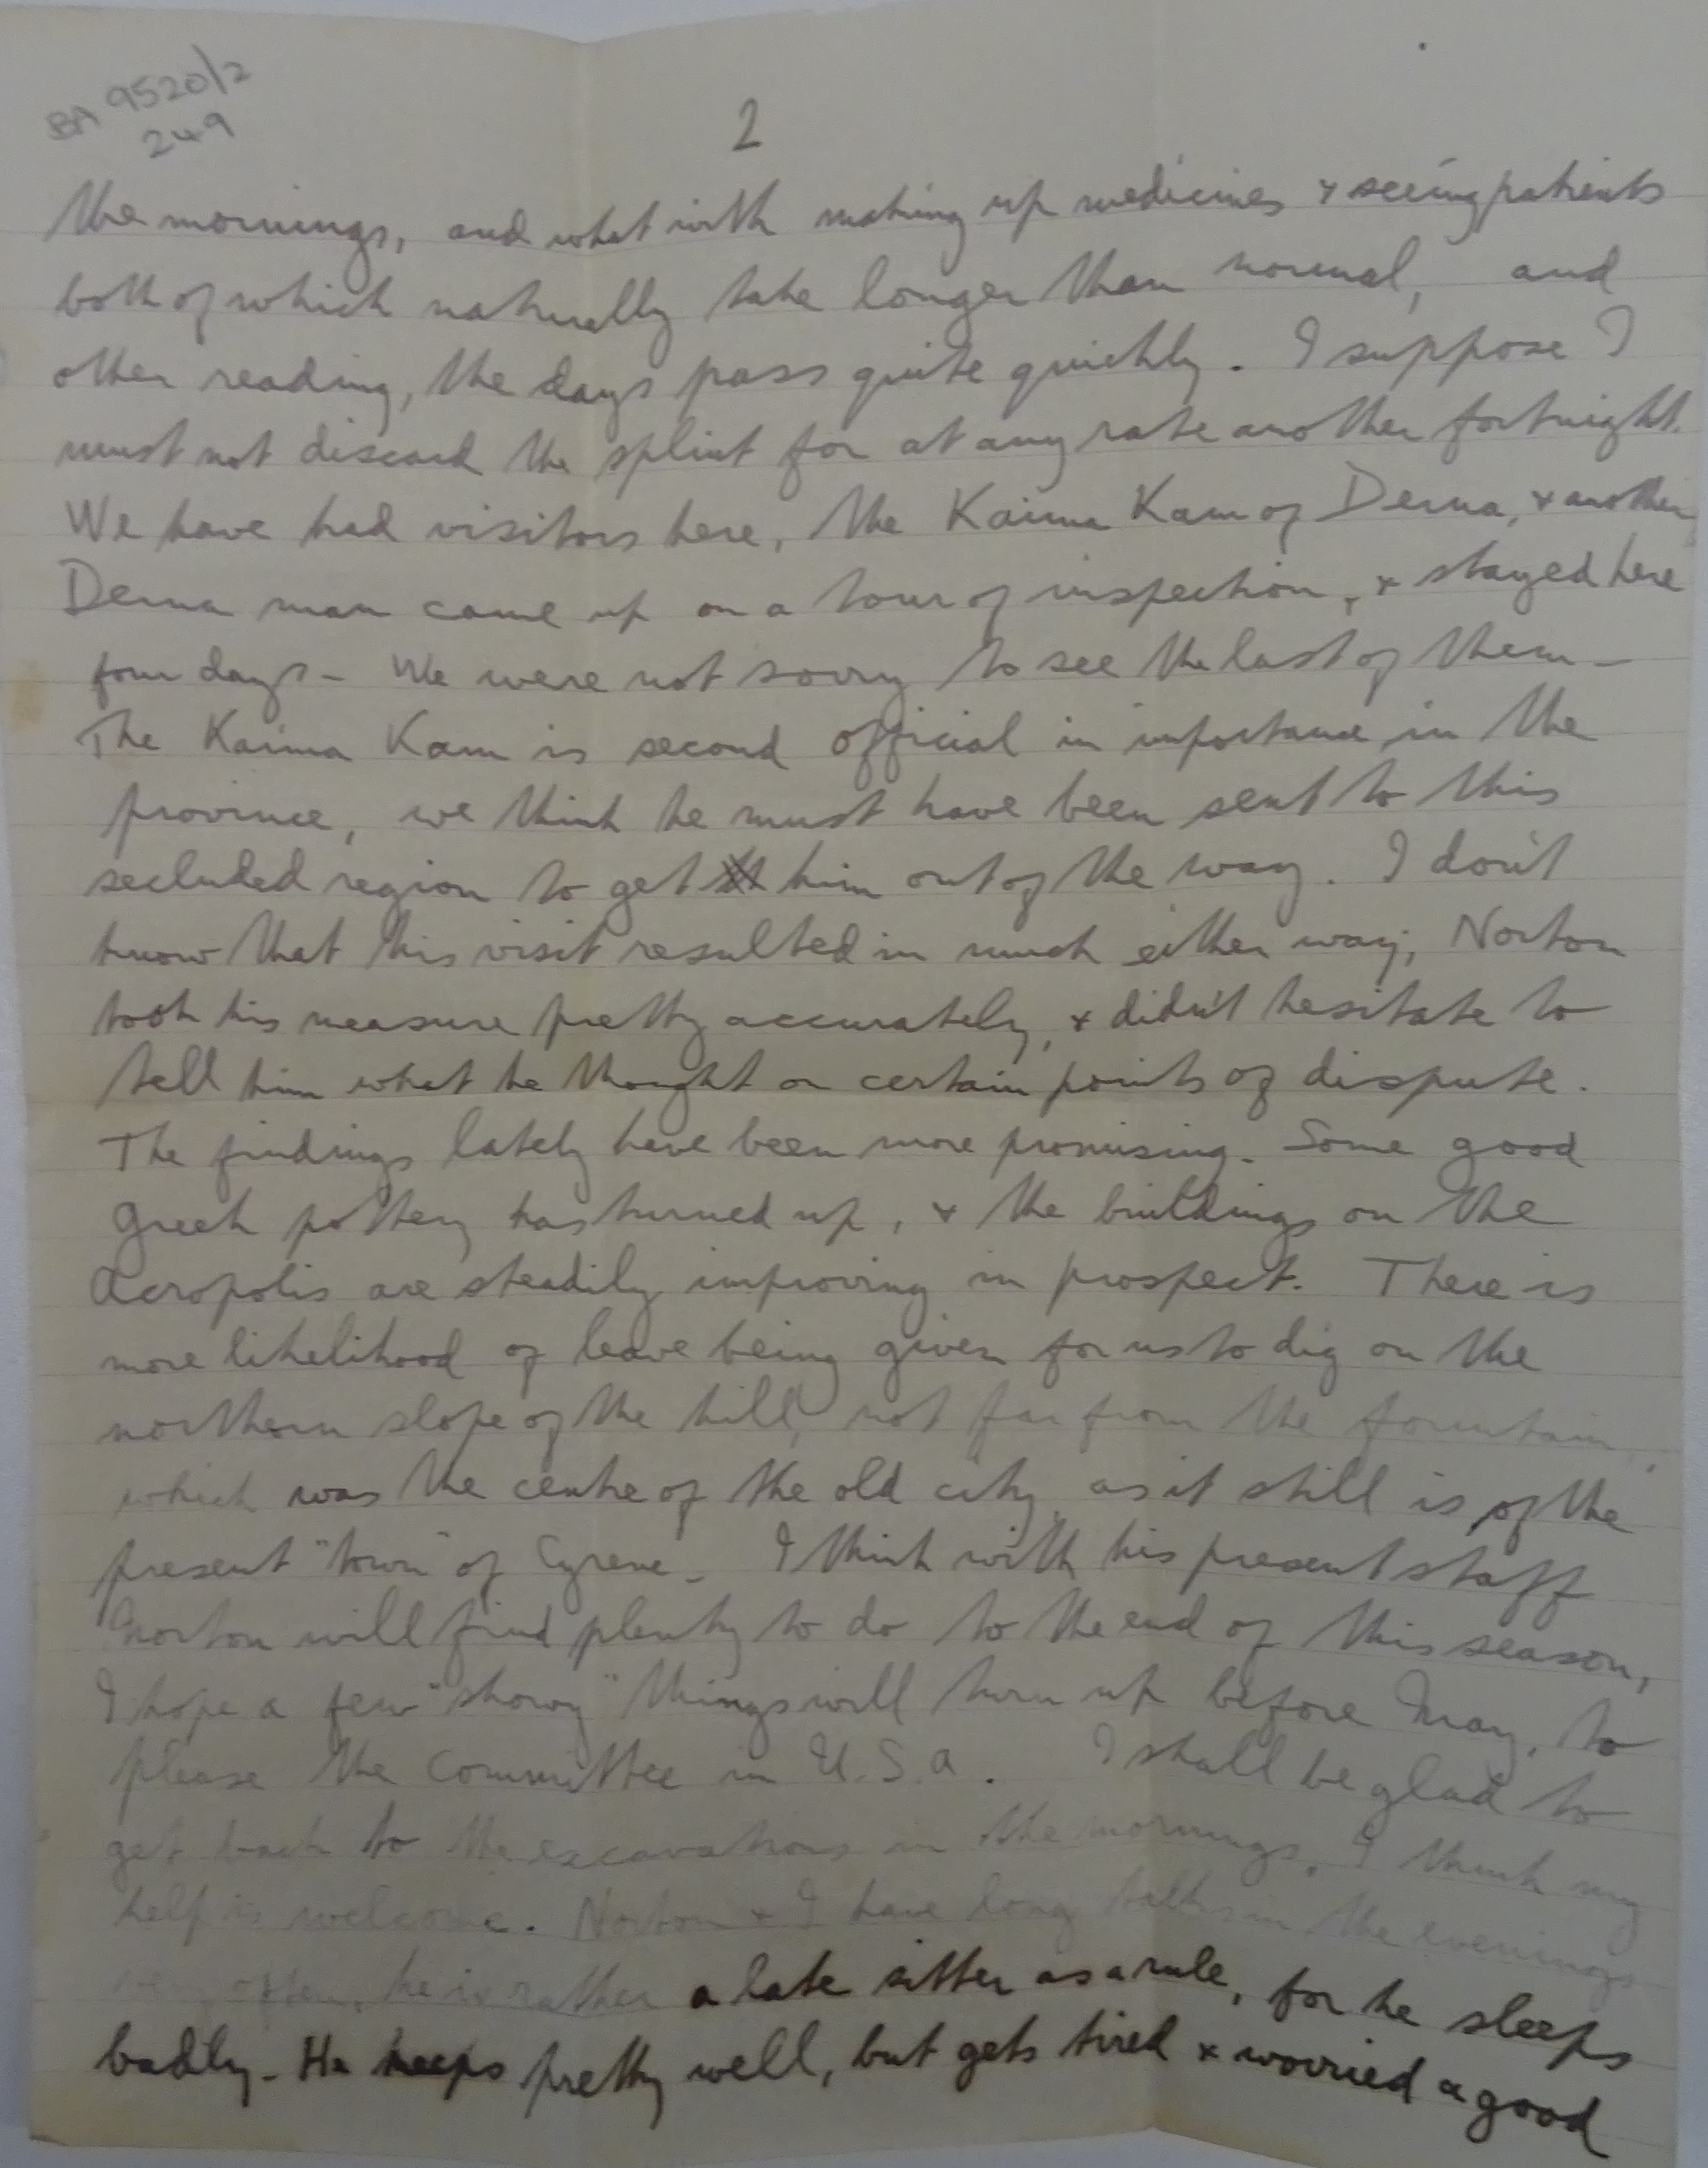 BA 9520/2
249
2
the mornings, and what with making up medicines & seeing patients
both of which naturally take longer than normal, and
other reading, the days pass quite quickly. I suppose I
must not discard the splint for at any rate another fortnight.
We have had visitors here, the Kaima Kam of Derna, & another
Derna man came up on a tour of inspection, & stayed here
four days - We were not sorry to see the last of them -
The Kaima Kam is second official in importance in the
province, we think he must have been sent to this
secluded region to get him out of the way. I don't
know that his visit resulted in much either way, Norton
took his measure pretty accurately, & didn't hesitate to
tell him what he thought on certain points of dispute.
The findings lately have been more promising. Some good
Greek pottery has turned up, & the buildings on the
Acropolis are steadily improving in prospect. There is
more likelihood of leave being given for us to dig on the
northern slope of the hill, not far from the fountain,
which was the centre of the old city, as it still is of the
present "town" of Cyrene - I think with his present staff
Norton will find plenty to do to the end of this season,
I hope a few "showy" things will turn up before May, to
please the Committee in U.S.A. I shall be glad to
get back to the excavations in the mornings, I think my
help is welcome. Norton & I have long talks in the evenings
very often, he is rather a late sitter as a rule, for he sleeps
badly - He keeps pretty well, but gets tired & worried a good